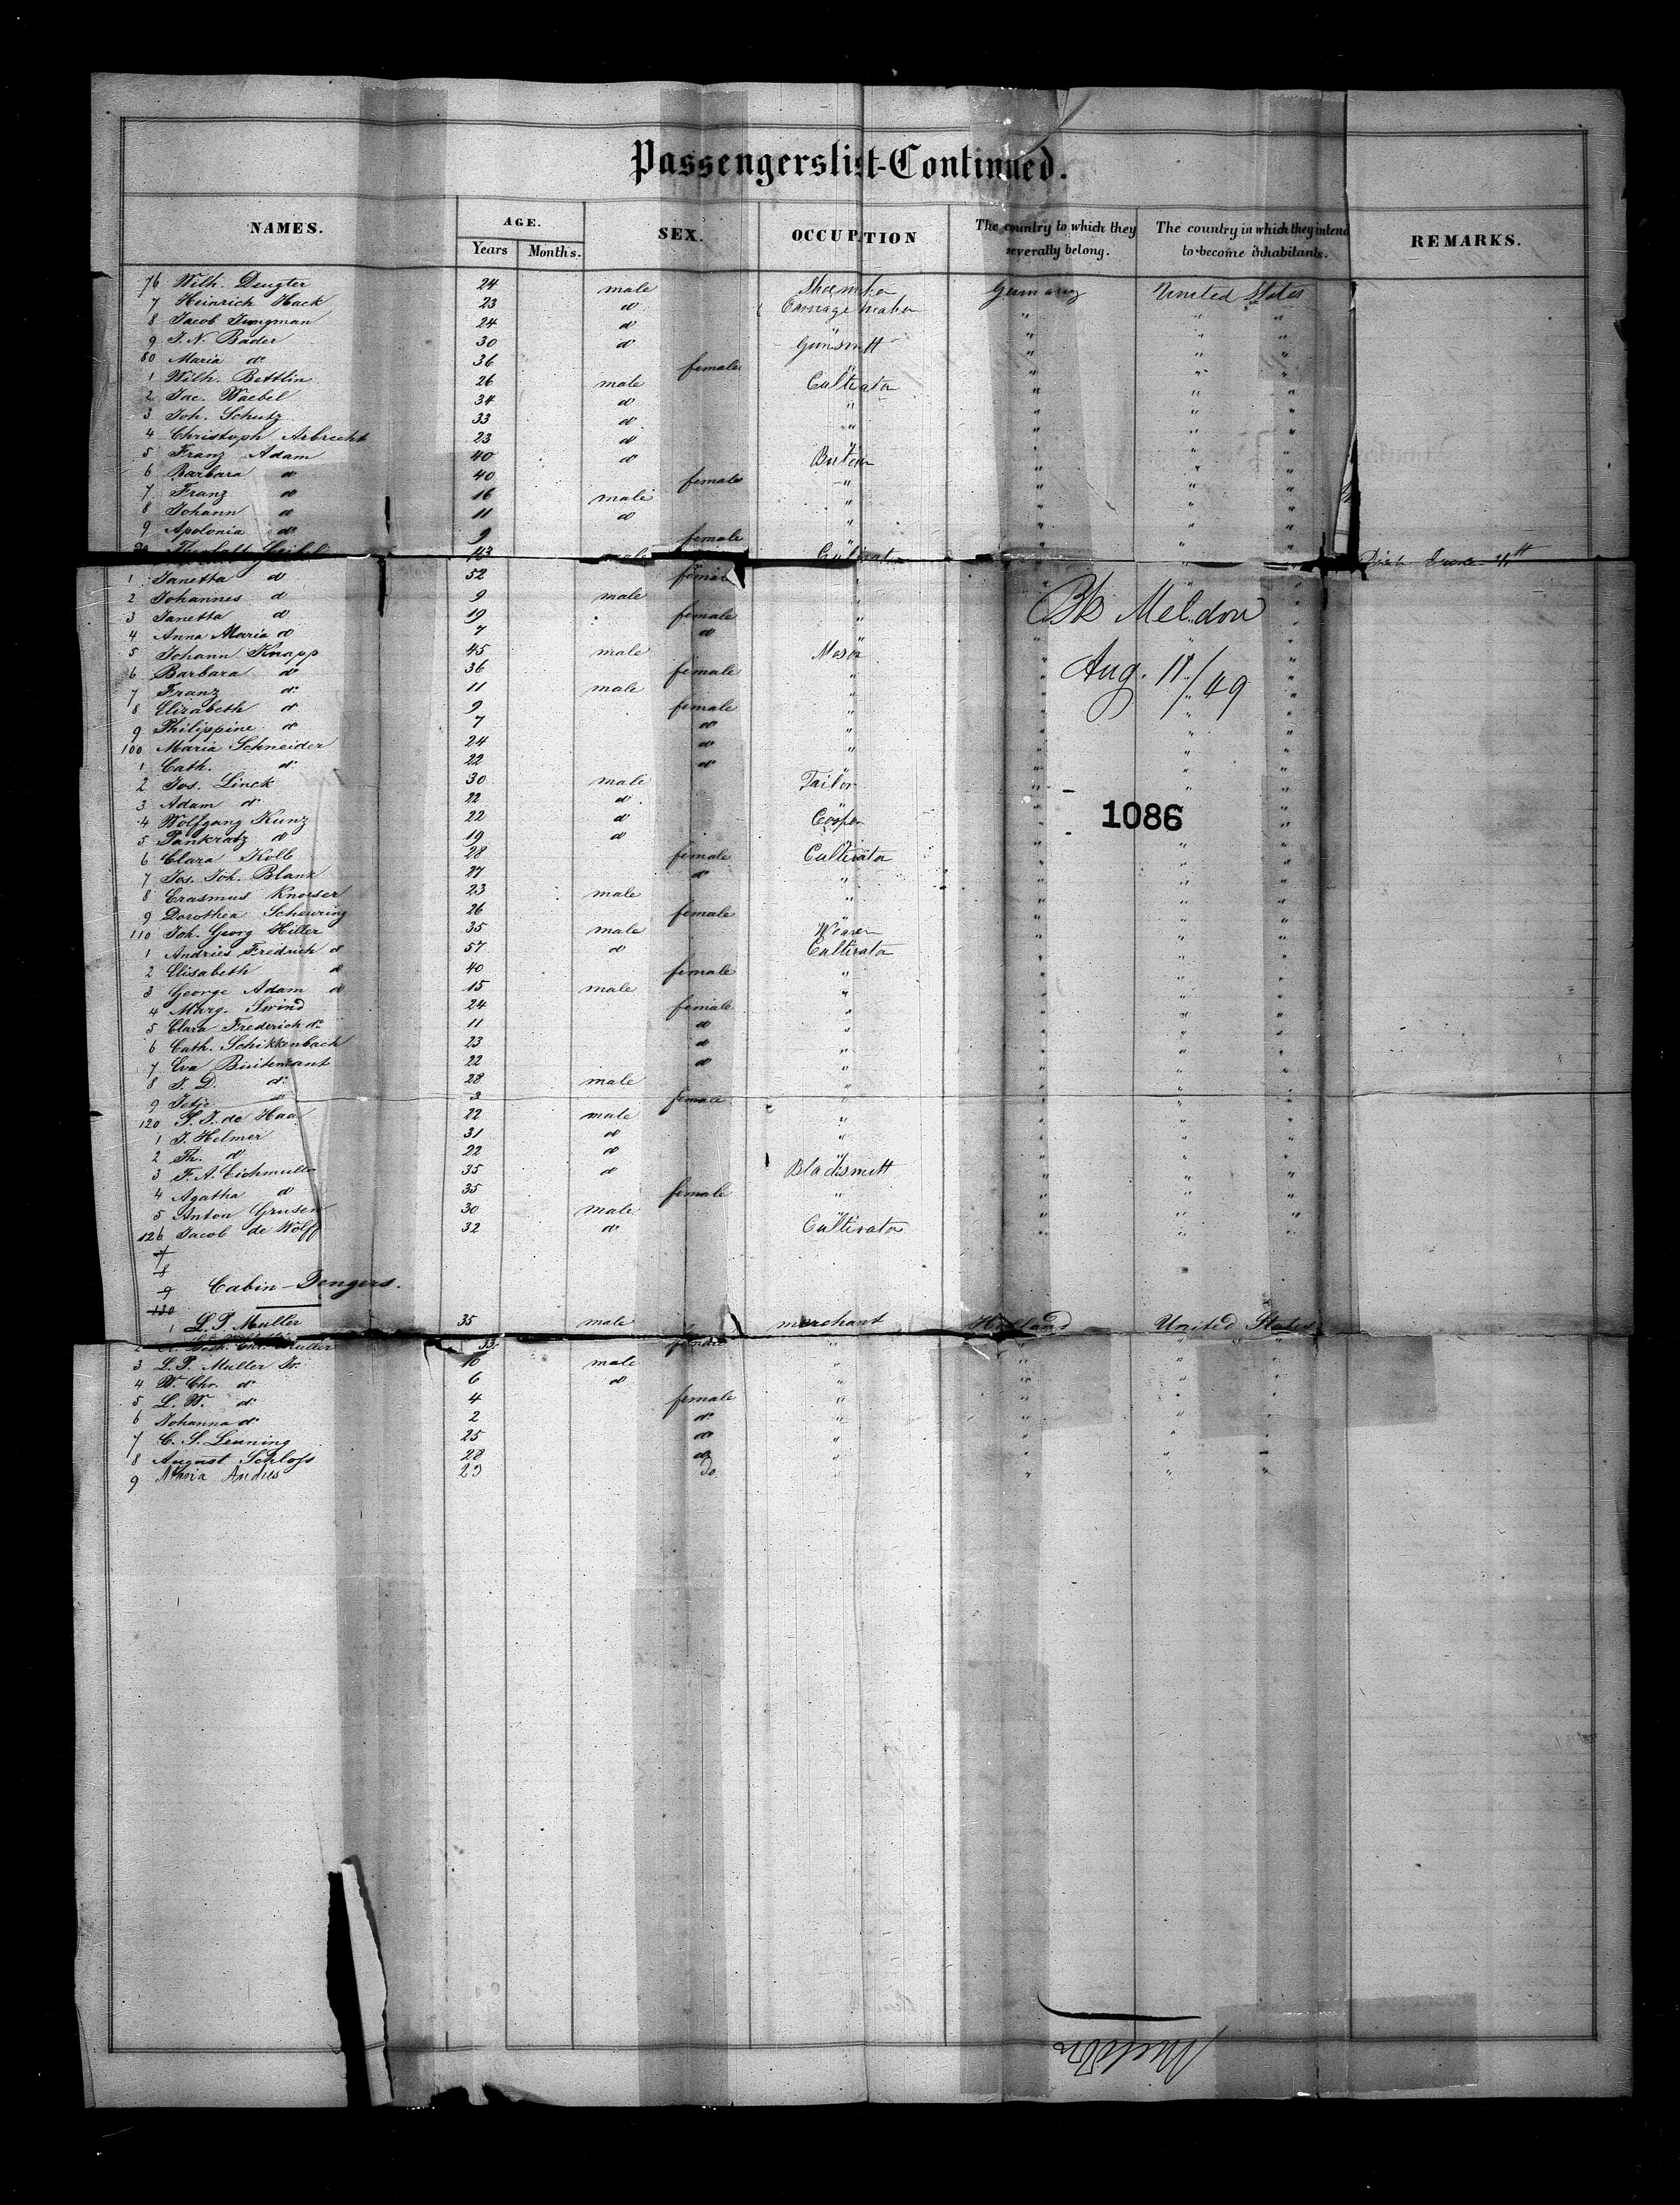 Passengerslist-Continued.
NAMES. AGE. SEX. OCCUPATION The country to which they severally belong. The country in which they intend to become inhabitants. REMARKS.
Years Months.
76 Wilh. Dengter 24 male Shoemaker Germany United States
7 Heinrich Hack 23 do Carriage maker " " "
8 Jacob Jungman 24 do " " " "
9 J. N. Bader 30 do Gunsmitt " " "
80 Maria do 36 female " " " "
1 Wilh. Bettlin 26 male Cultivator " " "
2 Jac. Waebel 34 do " " " "
3 Joh. Schutz 33 do " " " "
4 Christoph Arbrecht 23 do " " " "
5 Franz Adam 40 do " " "
6 Barbara do 40 female " " " "
7 Franz do 16 male " " " "
8 Johann do 11 do " " " "
9 Apolonia do 9 female " " " "
90 43 male Cultivator " " " June 4th
1 Janetta do 52 female " " " "
2 Johannes do 9 male " " " "
3 Janetta do 19 female " " " "
4 Anna Maria do 7 do " " " "
5 Johann Knapp 45 male Mason " " "
6 Barbara do 36 female " " " "
7 Franz do 11 male " " " "
8 Elizabeth do 9 female " " " "
9 Philippine do 7 do " " " "
100 Maria Schneider 24 do " " " "
1 Cath. do 22 do " " " "
2 Jos. Linck 30 male Tailor " " "
3 Adam do 22 do " " " "
4 Wolfgang Kunz 22 do Cooper " " "
5 Pankratz do 19 do " " " "
6 Clara Kolb 28 female Cultivator " " "
7 Jos. Joh. Blank 27 do " " " "
8 Erasmus Knorser 23 male " " " "
9 Dorothea Scheuring 26 female " " " "
110 Joh. Georg Hiller 35 male Weaver " " "
1 Andries Fredrich do 57 do Cultivator " " "
2 Elisabeth do 40 female " " " "
3 George Adam do 15 male " " " "
4 Marg. Swind 24 female " " " "
5 Clara Frederich do 11 do " " " "
6 Cath. Schikkenbach 23 do " " " "
7 Eva Buitenzant 22 do " " " "
8 J. D. do 28 male " " " "
9 Jetje do 3 female " " " "
120 S. J. de Haa 22 male " " " "
1 J. Helmer 31 do " " " "
2 Th. do 22 do " " " "
3 F. A. Eichmuller 35 do Blacksmitt " " "
4 Agatha do 35 female " " " "
5 Anton Grusen 30 male " " " "
126 Jacob de Wolff 32 do Cultivator " " "
Bk Meldon
Aug. 11/49
1086
7
8
9 Cabin-Pengers.
130
1 L. P. Muller 35 male merchant Holland United States
2 Muller 33 female " " " "
3 L. P. Muller Jr. 10 male " " " "
4 W. Chr. do 6 do " " " "
5 L. W. do 4 female " " " "
6 Johanna do 2 do " " " "
7 C. S. Leuning 25 do " " " "
8 August Schloss 28 do " " "
9 Maria Andres 23 Do. " " " "
Meldon